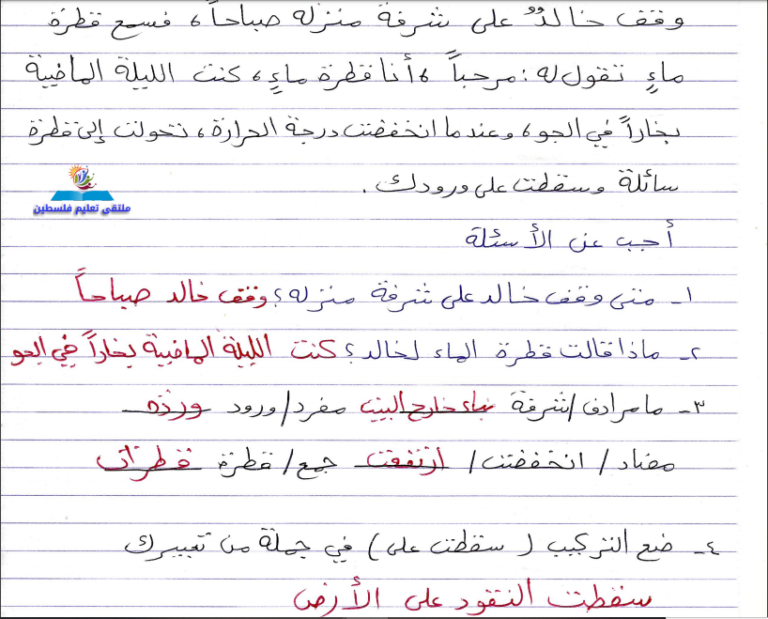 وقف خالدٌ على شرفة منزله صباحاً، فسمع قطرة
ماءٍ تقول له: مرحباً، أنا قطرة ماءٍ، كنت الليلة الماضية
بخاراً في الجو، وعندما انخفضت درجة الحرارة، تحولت إلى قطرة
سائلة وسقطت على ورودك.
ملتقى تعليم فلسطين
أجب عن الأسئلة
١- متى وقف خالد على شرفة منزله؟ وقف خالد صباحاً
٢- ماذا قالت قطرة الماء لخالد؟ كنت الليلة الماضية بخاراً في الجو
٣- ما مرادف/ شرفة بناء خارج البيت مفرد/ ورود وردة
مضاد/ انخفضت/ ارتفعت جمع/ قطرة قطرات
٤- ضع التركيب (سقطت على) في جملة من تعبيرك
سقطت النقود على الأرض